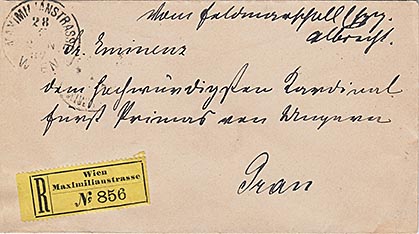 MAXIMILIANSTRASSE
28
WIEN
Vom Feldmarschall Erzh.
Albrecht.
Sr. Eminenz
dem hochwürdigsten Kardinal
Fürst Primas von Ungarn
Gran
R
Wien
Maximilianstrasse
№ 856